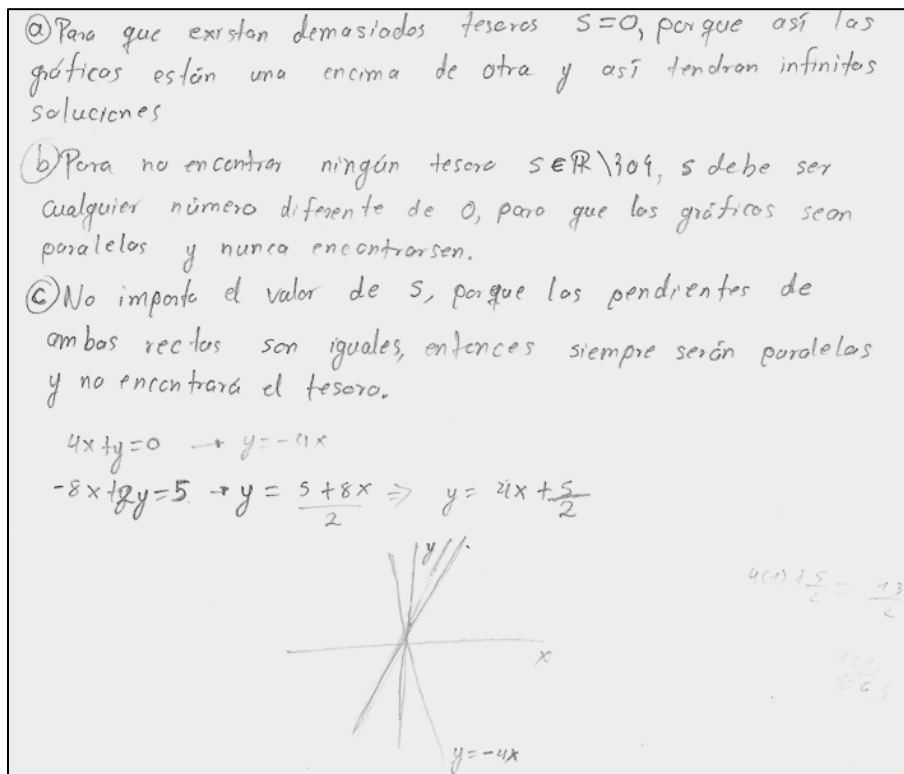 ⓐ Para que existan demasiados tesoros S=0, porque así las
gráficas están una encima de otra y así tendran infinitas
soluciones
ⓑ Para no encontrar ningún tesoro s∈ℝ\{0}, s debe ser
cualquier número diferente de 0, para que las gráficas sean
paralelas y nunca encontrarsen.
ⓒ No importa el valor de s, porque las pendientes de
ambas rectas son iguales, entonces siempre serán paralelas
y no encontrará el tesoro.
4x+y=0 → y=-4x
-8x+2y=5 → y = \frac{5+8x}{2} ⇒ y = 4x + \frac{5}{2}
y
4(1) + \frac{5}{2} = \frac{13}{2}
x
y=-4x